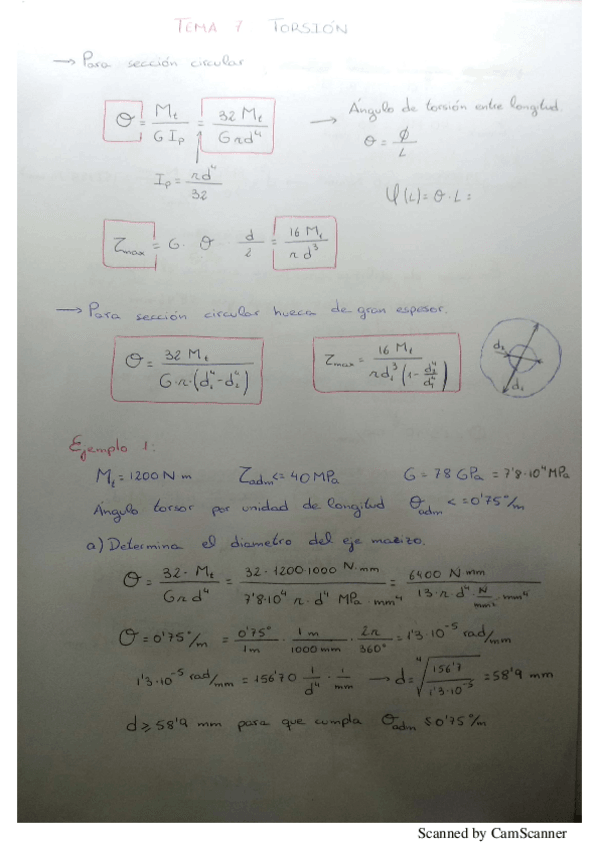 TEMA 7 TORSIÓN
→ Para sección circular
θ = Mt / (G Ip) = 32 Mt / (G π d⁴) → Ángulo de torsión entre longitud.
θ = ϕ / L
Ip = π d⁴ / 32
φ(L) = θ · L =
τmax = G · θ · d/2 = 16 Mt / (π d³)
→ Para sección circular hueca de gran espesor.
θ = 32 Mt / (G · π · (
τmax = 16 Mt /
Ejemplo 1:
Mt = 1200 N m τadm <= 40 MPa G = 78 GPa = 7'8 · 10⁴ MPa
Ángulo torsor por unidad de longitud θadm <= 0'75°/m
a) Determina el diametro del eje macizo.
θ = 32 · Mt / (G π d⁴) = 32 · 1200 · 1000 N · mm / (7'8 · 10⁴ π · d⁴ MPa · mm⁴) = 6400 N mm / (13 · π · d⁴ N/mm² · mm⁴)
θ = 0'75°/m = 0'75°/1m · 1m/1000 mm · 2π/360° = 1'3 · 10⁻⁵ rad/mm
1'3 · 10⁻⁵ rad/mm = 156'70 1/d⁴ · 1/mm → d = ⁴√(156'7 / 1'3 · 10⁻⁵) = 58'9 mm
d ≥ 58'9 mm para que cumpla θadm ≤ 0'75°/m
Scanned by CamScanner